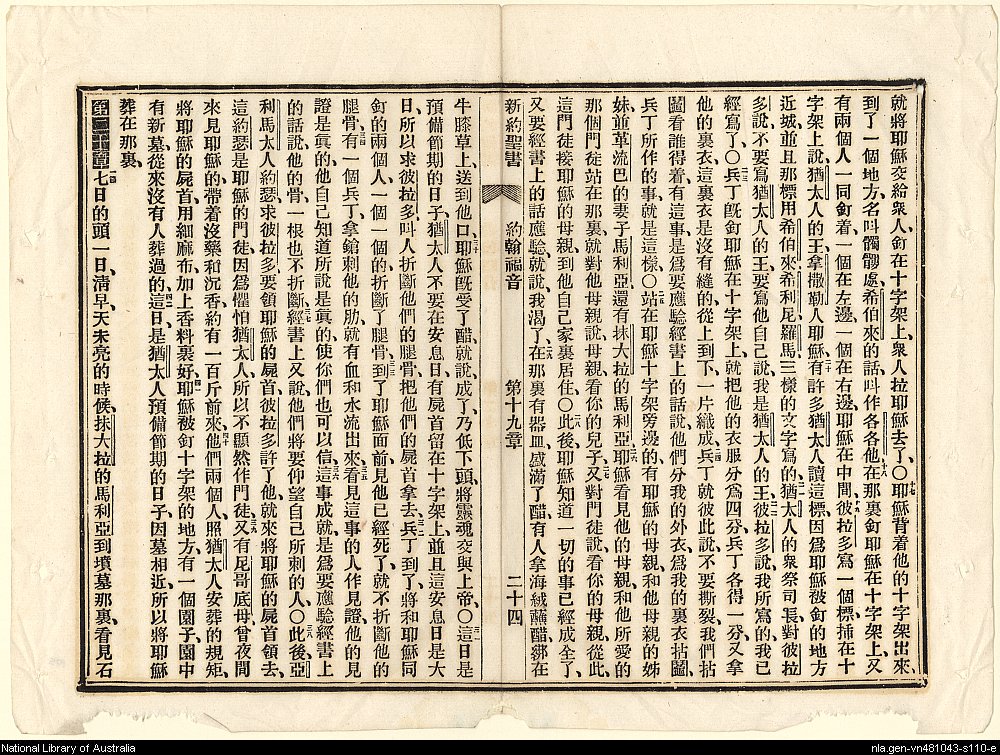 就將耶穌交給衆人、釘在十字架上、衆人拉耶穌去了、○十七耶穌背着他的十字架出來、
到了一個地方、名叫髑髏處、希伯來的話叫作各各他、十八在那裏釘耶穌在十字架上、又
有兩個人一同釘着、一個在左邊、一個在右邊、耶穌在中間、十九彼拉多寫一個標、插在十
字架上說、猶太人的王、拿撒勒人耶穌、二十有許多猶太人讀這標、因爲耶穌被釘的地方
近城、並且那標用希伯來、希利尼、羅馬、三樣的文字寫的、二一猶太人的衆祭司長、對彼拉
多說、不要寫猶太人的王、要寫他自己說我是猶太人的王、二二彼拉多說、我所寫的、我已
經寫了、○二三兵丁旣釘耶穌在十字架上、就把他的衣服分爲四分、兵丁各得一分、又拿
他的裏衣、這裏衣是沒有縫的、從上到下、一片織成、二四兵丁就彼此說、不要撕裂、我們拈
鬮看誰得着、有這事是爲要應驗經書上的話說、他們分我的外衣、爲我的裏衣拈鬮、
兵丁所作的事、就是這樣、○二五站在耶穌十字架旁邊的、有耶穌的母親、和他母親的姊
妹、並革流巴的妻子馬利亞、還有抹大拉的馬利亞、二六耶穌看見他的母親、和他所愛的
那個門徒站在那裏、就對他母親說、母親看你的兒子、二七又對門徒說、看你的母親、從此
這門徒接耶穌的母親、到他自己家裏居住、○二八此後、耶穌知道一切的事已經成全了、
又要經書上的話應驗、就說我渴了、二九在那裏有器皿、盛滿了醋、有人拿海絨蘸醋、綁在
新約聖書 約翰福音 第十九章 二十四
牛膝草上、送到他口、三十耶穌旣受了醋、就說成了、乃低下頭、將靈魂交與上帝、○三一這日是
預備節期的日子、猶太人不要在安息日有屍首留在十字架上、並且這安息日是大
日、所以求彼拉多、叫人折斷他們的腿骨、把他們的屍首拿去、三二兵丁到了、將和耶穌同
釘的兩個人、一個一個的折斷了腿骨、三三到了耶穌面前、見他已經死了、就不折斷他的
腿骨、三四有一個兵丁、拿鎗刺他的肋、就有血和水流出來、三五看見這事的人作見證、他的見
證是眞的、他自己知道所說是眞的、使你們也可以信、三六這事成就、是爲要應驗經書上
的話說、他的骨一根也不折斷、三七經書上又說、他們將要仰望自己所刺的人、○三八此後、亞
利馬太人約瑟、求彼拉多、要領耶穌的屍首、彼拉多許了他、就來將耶穌的屍首領去、
這約瑟是耶穌的門徒、因爲懼怕猶太人、所以不顯然作門徒、三九又有尼哥底母、曾夜間
來見耶穌的、帶着沒藥和沉香、約有一百斤前來、四十他們兩個人、照猶太人安葬的規矩、
將耶穌的屍首、用細麻布加上香料裹好、四一耶穌被釘十字架的地方、有一個園子、園中
有新墓、從來沒有人葬過的、四二這日是猶太人預備節期的日子、因墓相近、所以將耶穌
葬在那裏、
第二十章 一七日的頭一日、清早、天未亮的時候、抹大拉的馬利亞到墳墓那裏、看見石
National Library of Australia
nla.gen-vn481043-s110-e